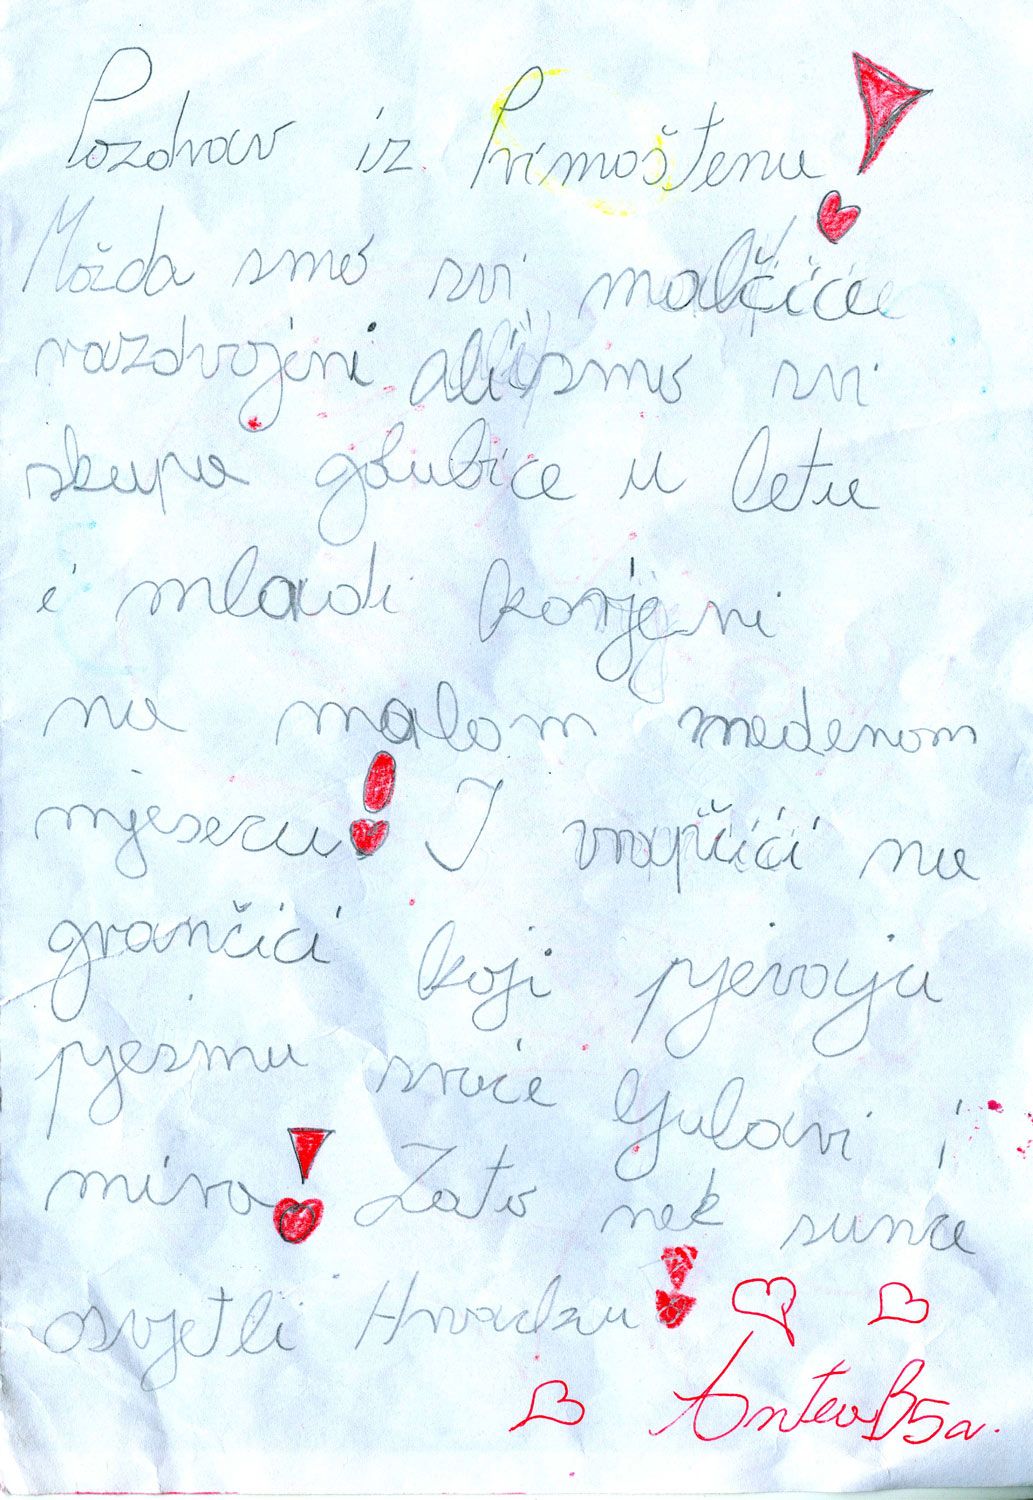 Pozdrav iz Primoštena!
Možda smo svi malčice
razdvojeni ali smo svi
skupa golubice u letu
i mladi korijeni
na malom medenom
mjesecu! I vrapčići na
grančici koji pjevaju
pjesmu sreće ljubavi i
mira! Zato nek sunce
osvjetli Hrvatsku!
Antea B 5a.